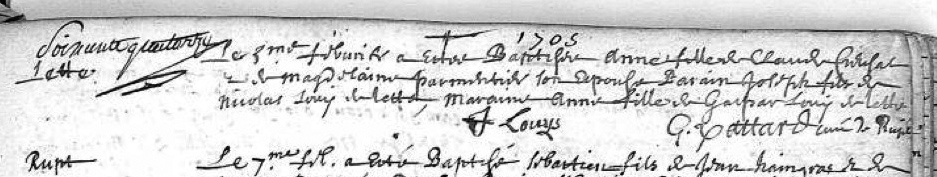 1705
Soixante quatorze
Lette
Le 5me feburier a Estee Baptisée Anne fille de Claude
& de Magdelaine parmentier son Espouse Parain Joseph fils de
Nicolas Louis de lette Maraine Anne fille de Gaspar Louis de lette
Louys G. Pattard curé de Rupt
Rupt
Le 7me feb. a Esté Baptisé Sebastien fils de Jean & de